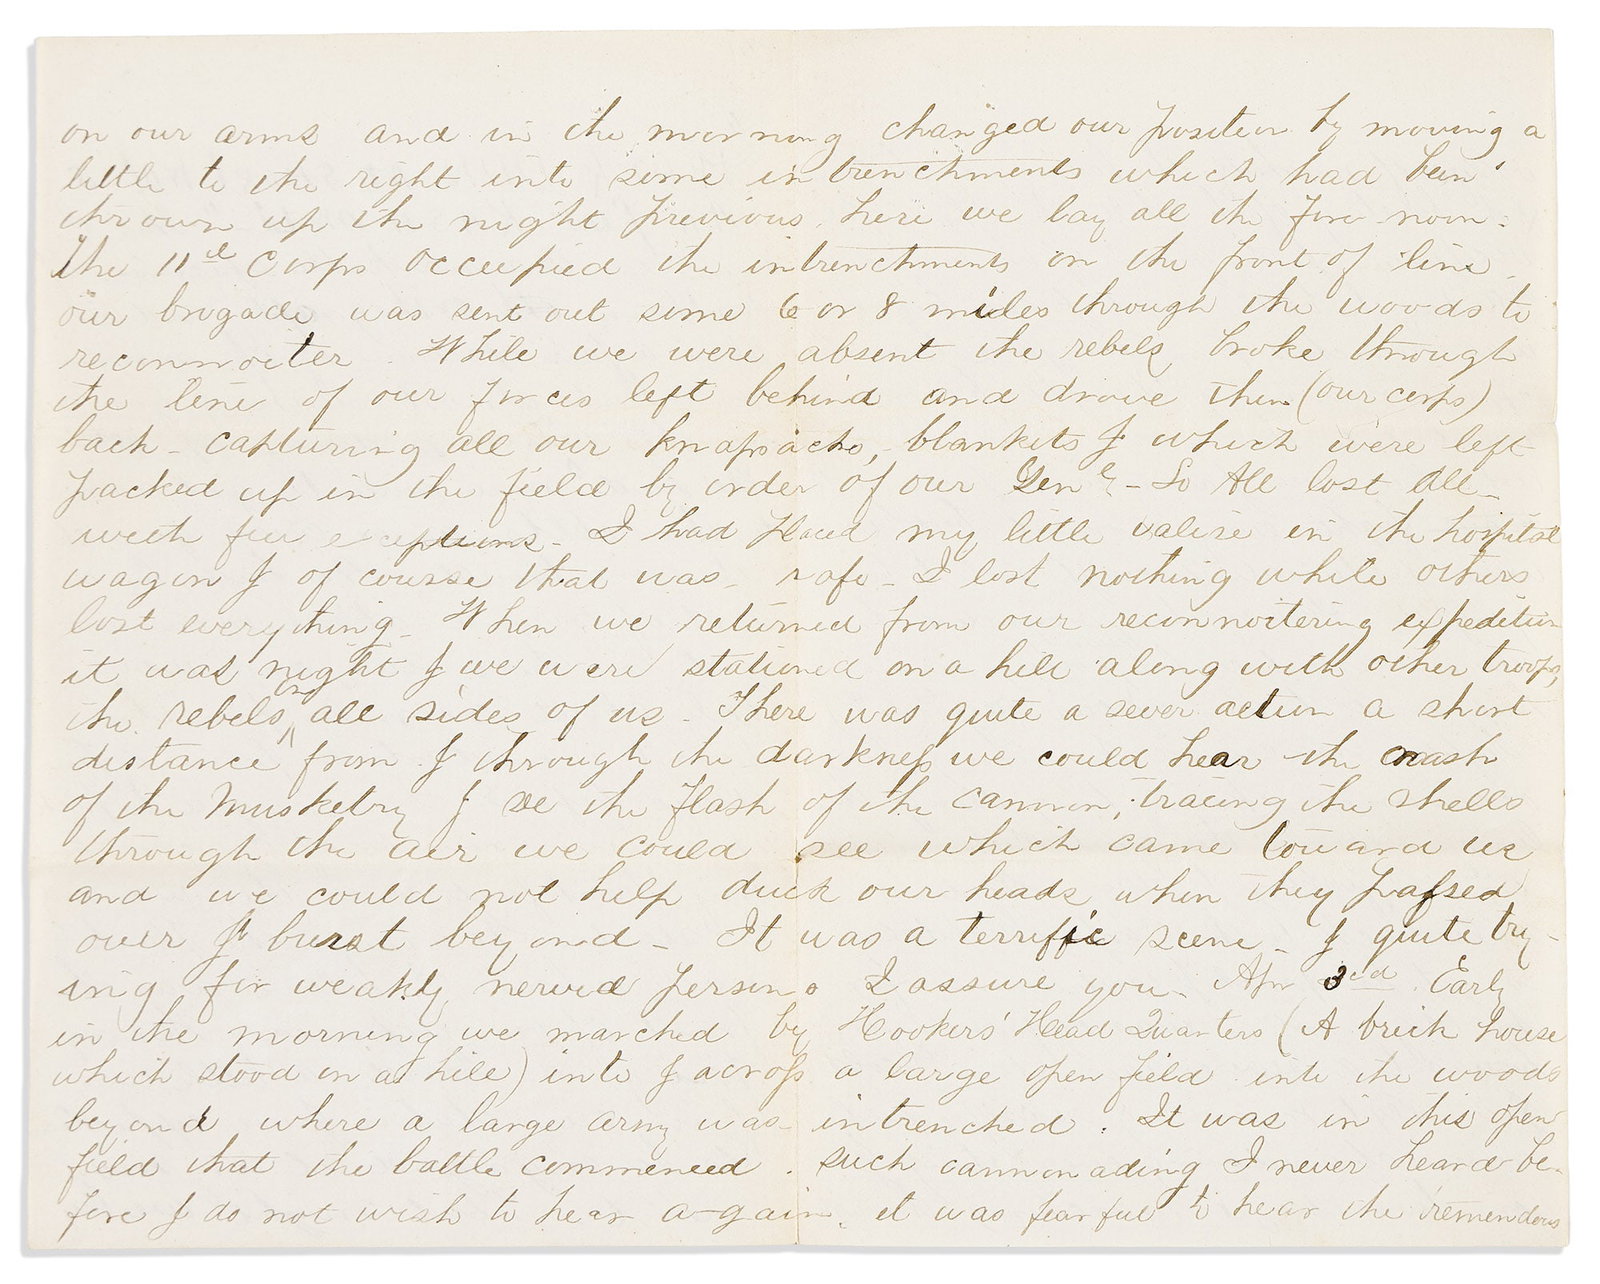 on our arms and in the morning changed our position by moving a
little to the right into some intrenchments which had been
thrown up the night previous. here we lay all the fore noon.
The 11th Corps occupied the intrenchments on the front of line.
our brigade was sent out some 6 or 8 miles through the woods to
reconnoiter. While we were absent the rebels broke through
the line of our forces left behind and drove them (our corps)
back - capturing all our knapsacks, blankets & which were left
packed up in the field by order of our Genl - So All lost All -
with few exceptions - I had placed my little valise in the hospital
wagon & of course that was safe - I lost nothing while others
lost everything - When we returned from our reconnoitering expedition
it was night & we were stationed on a hill along with other troops,
the rebels on all sides of us - There was quite a sever action a short
distance from & through the darkness we could hear the crash
of the Musketry & see the flash of the cannon, tracing the shells
through the air we could see which came toward us
and we could not help duck our heads when they passed
over & burst beyond - It was a terriffic scene - & quite try-
ing for weakly nerved persons I assure you - Apr 3rd Early
in the morning we marched by Hookers' Head Quarters (A brick house
which stood on a hill) into & across a large open field into the woods
beyond where a large army was intrenched. It was in this open
field that the battle commenced. such cannonading I never heard be-
fore & do not wish to hear again. it was fearful to hear the tremendous